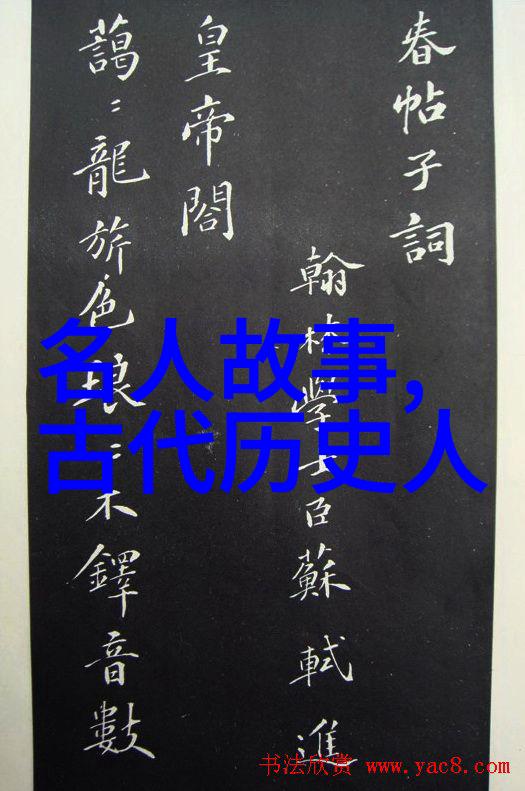 春帖子詞
翰林學士臣蘇軾進
皇帝閤
藹〻龍旂色琅〻木鐸音數
名人故事,
古代历史人
书法欣赏 www.yac8.com